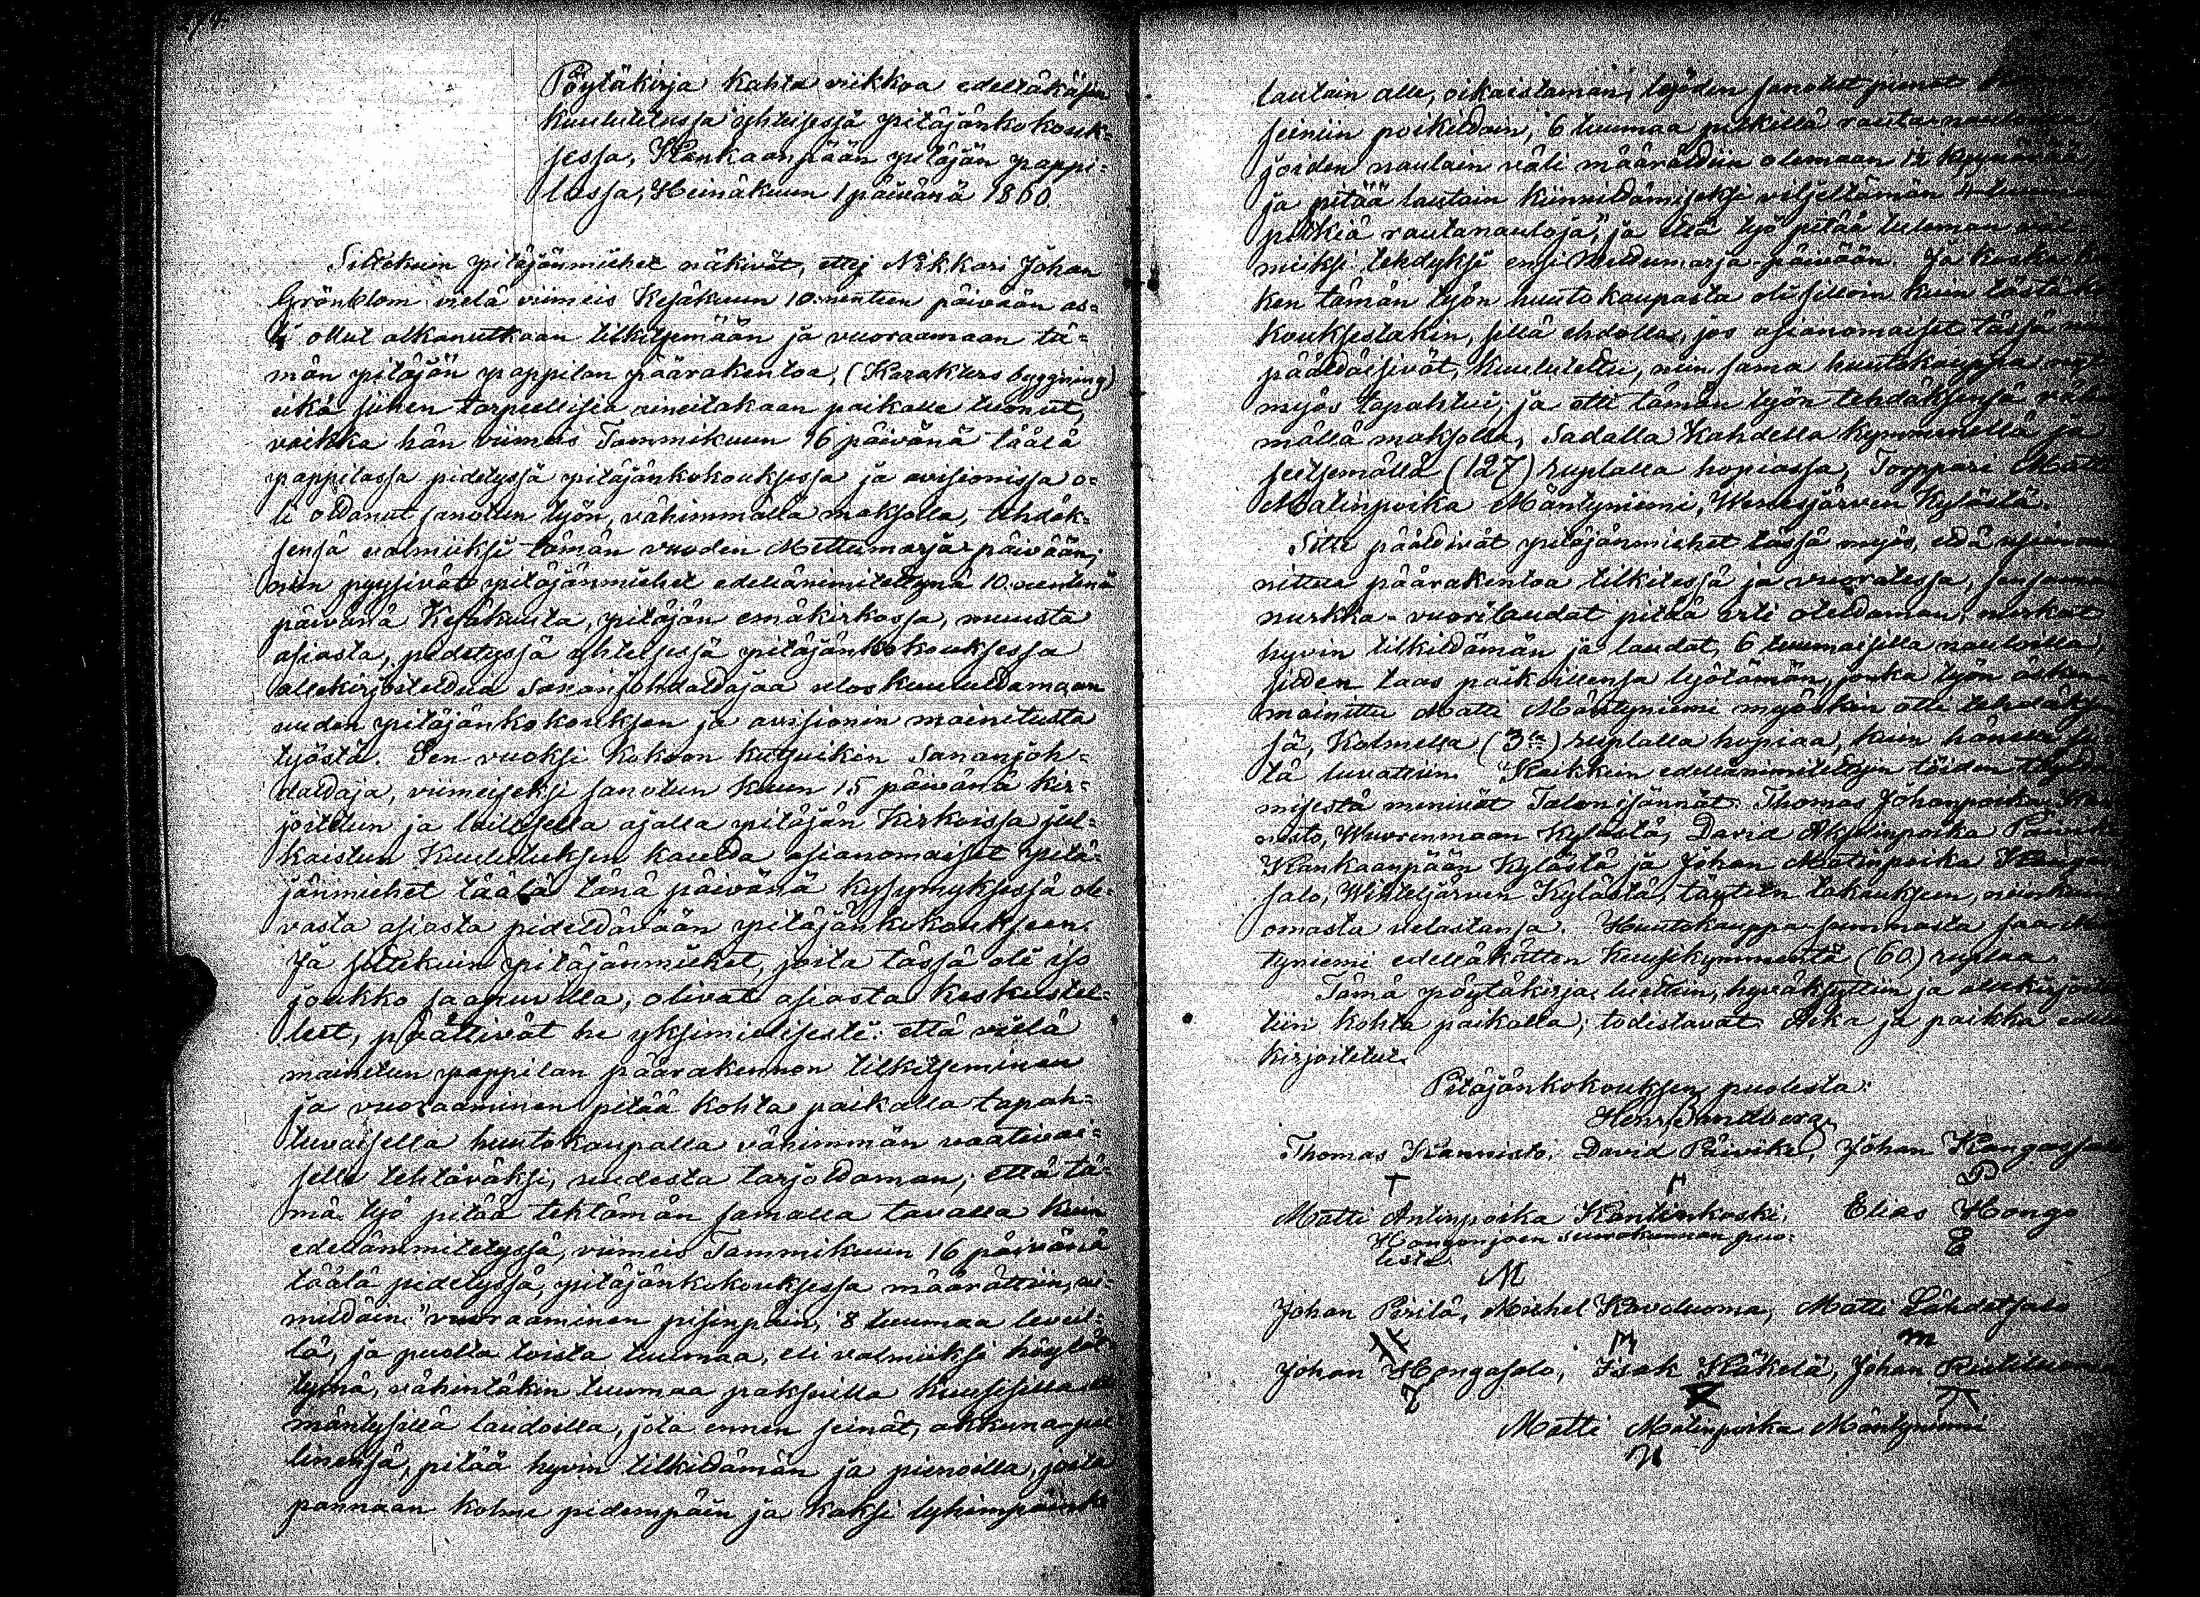 Pöytäkirja kahta viikkoa edeltäkäsin
kuulutetussa yhteisessä pitäjänkokouk=
sessa, Kankaanpään pitäjän pappi=
lassa, Heinäkuun 1 päivänä 1860.
Sittekuin pitäjänmiehet näkivät, ettej Nikkari Johan
Grönblom vielä viimeis Kesäkuun 10:nenteen päivään as=
ti ollut alkanutkaan tilkitsemään ja vuoraamaan tä=
män pitäjän pappilan päärakentoa, (Karakters byggning)
eikä siihen tarpeellisia aineitakaan paikalle tuonut,
vaikka hän viimeis Tammikuun 16 päivänä täälä
pappilassa pidetyssä pitäjänkokouksessa ja avisionissa o=
li ottanut sanotun työn, vähimmällä maksolla, tehdäk=
sensä valmiiksi tämän vuoden Mettumarja-päivään;
niin pyysivät pitäjänmiehet edellänimitettynä 10:nentenä
päivänä Kesäkuuta, pitäjän emäkirkossa, muusta
asiasta, pidetyssä yhteisessä pitäjänkokouksessa
allekirjoitettua Sananjohdattajaa uloskuuluttamaan
uuden pitäjänkokouksen ja avisionin mainitusta
työstä. Sen vuoksi kokoon kutsuikin Sananjoh=
dattaja, viimeiseksi sanotun kuun 15 päivänä kir=
joitetun ja laillisella ajalla pitäjän Kirkoissa jul=
kaistun Kuulutuksen kautta asianomaiset pitä=
jänmiehet täälä tänä päivänä kysymyksessä ole=
vasta asiasta pidettävään pitäjänkokoukseen.
Ja sittekuin pitäjänmiehet, joita tässä oli iso
joukko saapuvilla, olivat asiasta keskustel=
leet, päättivät he yksimielisesti: että vielä
mainitun pappilan päärakennon tilkitseminen
ja vuoraaminen pitää kohta paikalla tapah=
tuvaisella huutokaupalla vähimmän vaativai=
selle tehtäväksi, uudesta tarjottaman; että tä=
mä työ pitää tehtämän samalla tavalla kuin
edellämmitetyssä, viimeis Tammikuun 16 päivänä
täälä pidetyssä, pitäjänkokouksessa määrättiin, ni=
mittäin: vuoraaminen pisinpäin, 8 tuumaa leveil=
lä, ja puolta toista tuumaa, eli valmiiksi höylät=
tynä, vähintäkin tuumaa paksuilla kuusisilla eli
mäntysillä laudoilla, jota ennen seinät, akkuna-pie=
linensä, pitää hyvin tilkittämän ja pienoilla, joita
pannaan kolme pidempäin ja kaksi lyhempäin
lautain alle, oikaistaman, lyöden sanotut pienat
seiniin poikittain, 6 tuumaa pitkillä rautanauloilla
joiden naulain väli määrättiin olemaan 1½ kyynärää
ja pitää lautain kiinnittämiseksi viljeltämän 4 tuumaa
pitkiä rautanauloja, ja että työ pitää tuleman val=
miiksi tehdyksi ensi Mettumarja-päivään. Ja koska
ken tämän työn huutokaupasta oli silloin kuin tästä
kouksestakin, sillä ehdolla, jos asianomaiset tässä
päättäisivät, kuulutettu, niin sama huutokauppa
myös tapahtui; ja otti tämän työn tehdäksensä vähi
mällä maksolla, Sadalla Kahdella kymmenellä ja
seitsemällä (127) ruplalla hopiassa, Torppari Matti
Matinpoika Mäntyniemi, Wenesjärven Kylästä.
Sitte päättivät pitäjänmiehet tässä myös, että
nittua päärakentoa tilkitessä ja vuoratessa, sen
nurkka-vuorilaudat pitää irti otettaman, nurkat
hyvin tilkittämän ja laudat, 6 tuumaisilla nauloilla,
jälleen taas paikoillensa lyötämän, jonka työn äsken
mainittu Matti Mäntyniemi myöskin otti tehdäksen
sä, Kolmella (3:lla) ruplalla hopiaa, kuin hänelle
tä luvattiin. Kaikkein edellänimitettyin töiden
misestä menivät Talonisännät Thomas Johanpoika Kan
nisto, Wuorenmaan Kylästä, David Akselinpoika Päivike
Kankaanpään Kylästä ja Johan Matinpoika Kangas
salo, Wihteljärven Kylästä, täyteen takaukseen, niinkuin
omasta velastansa. Huutokauppa-summasta saa Män
tyniemi edeltäkätten Kuusikymmentä (60) ruplaa.
Tämä pöytäkirja luettiin, hyväksyttiin ja allekirjoitet
tiin kohta paikalla; todistavat. Aika ja paikka edellä
kirjoitetut.
Pitäjänkokouksen puolesta:
Henr. Sandberg
Thomas Kannisto, David Päivike, Johan Kangassalo
Matti Antinpoika Kantinkoski, Elias Hongo
Hongonjoen seurakunnan puo=
lesta.
M
Johan Perilä, Michel Kovoluoma, Matti Lähdetsalo
Johan Hongasalo, Isak Käkelä, Johan
Matti Matinpoika Mäntyniemi